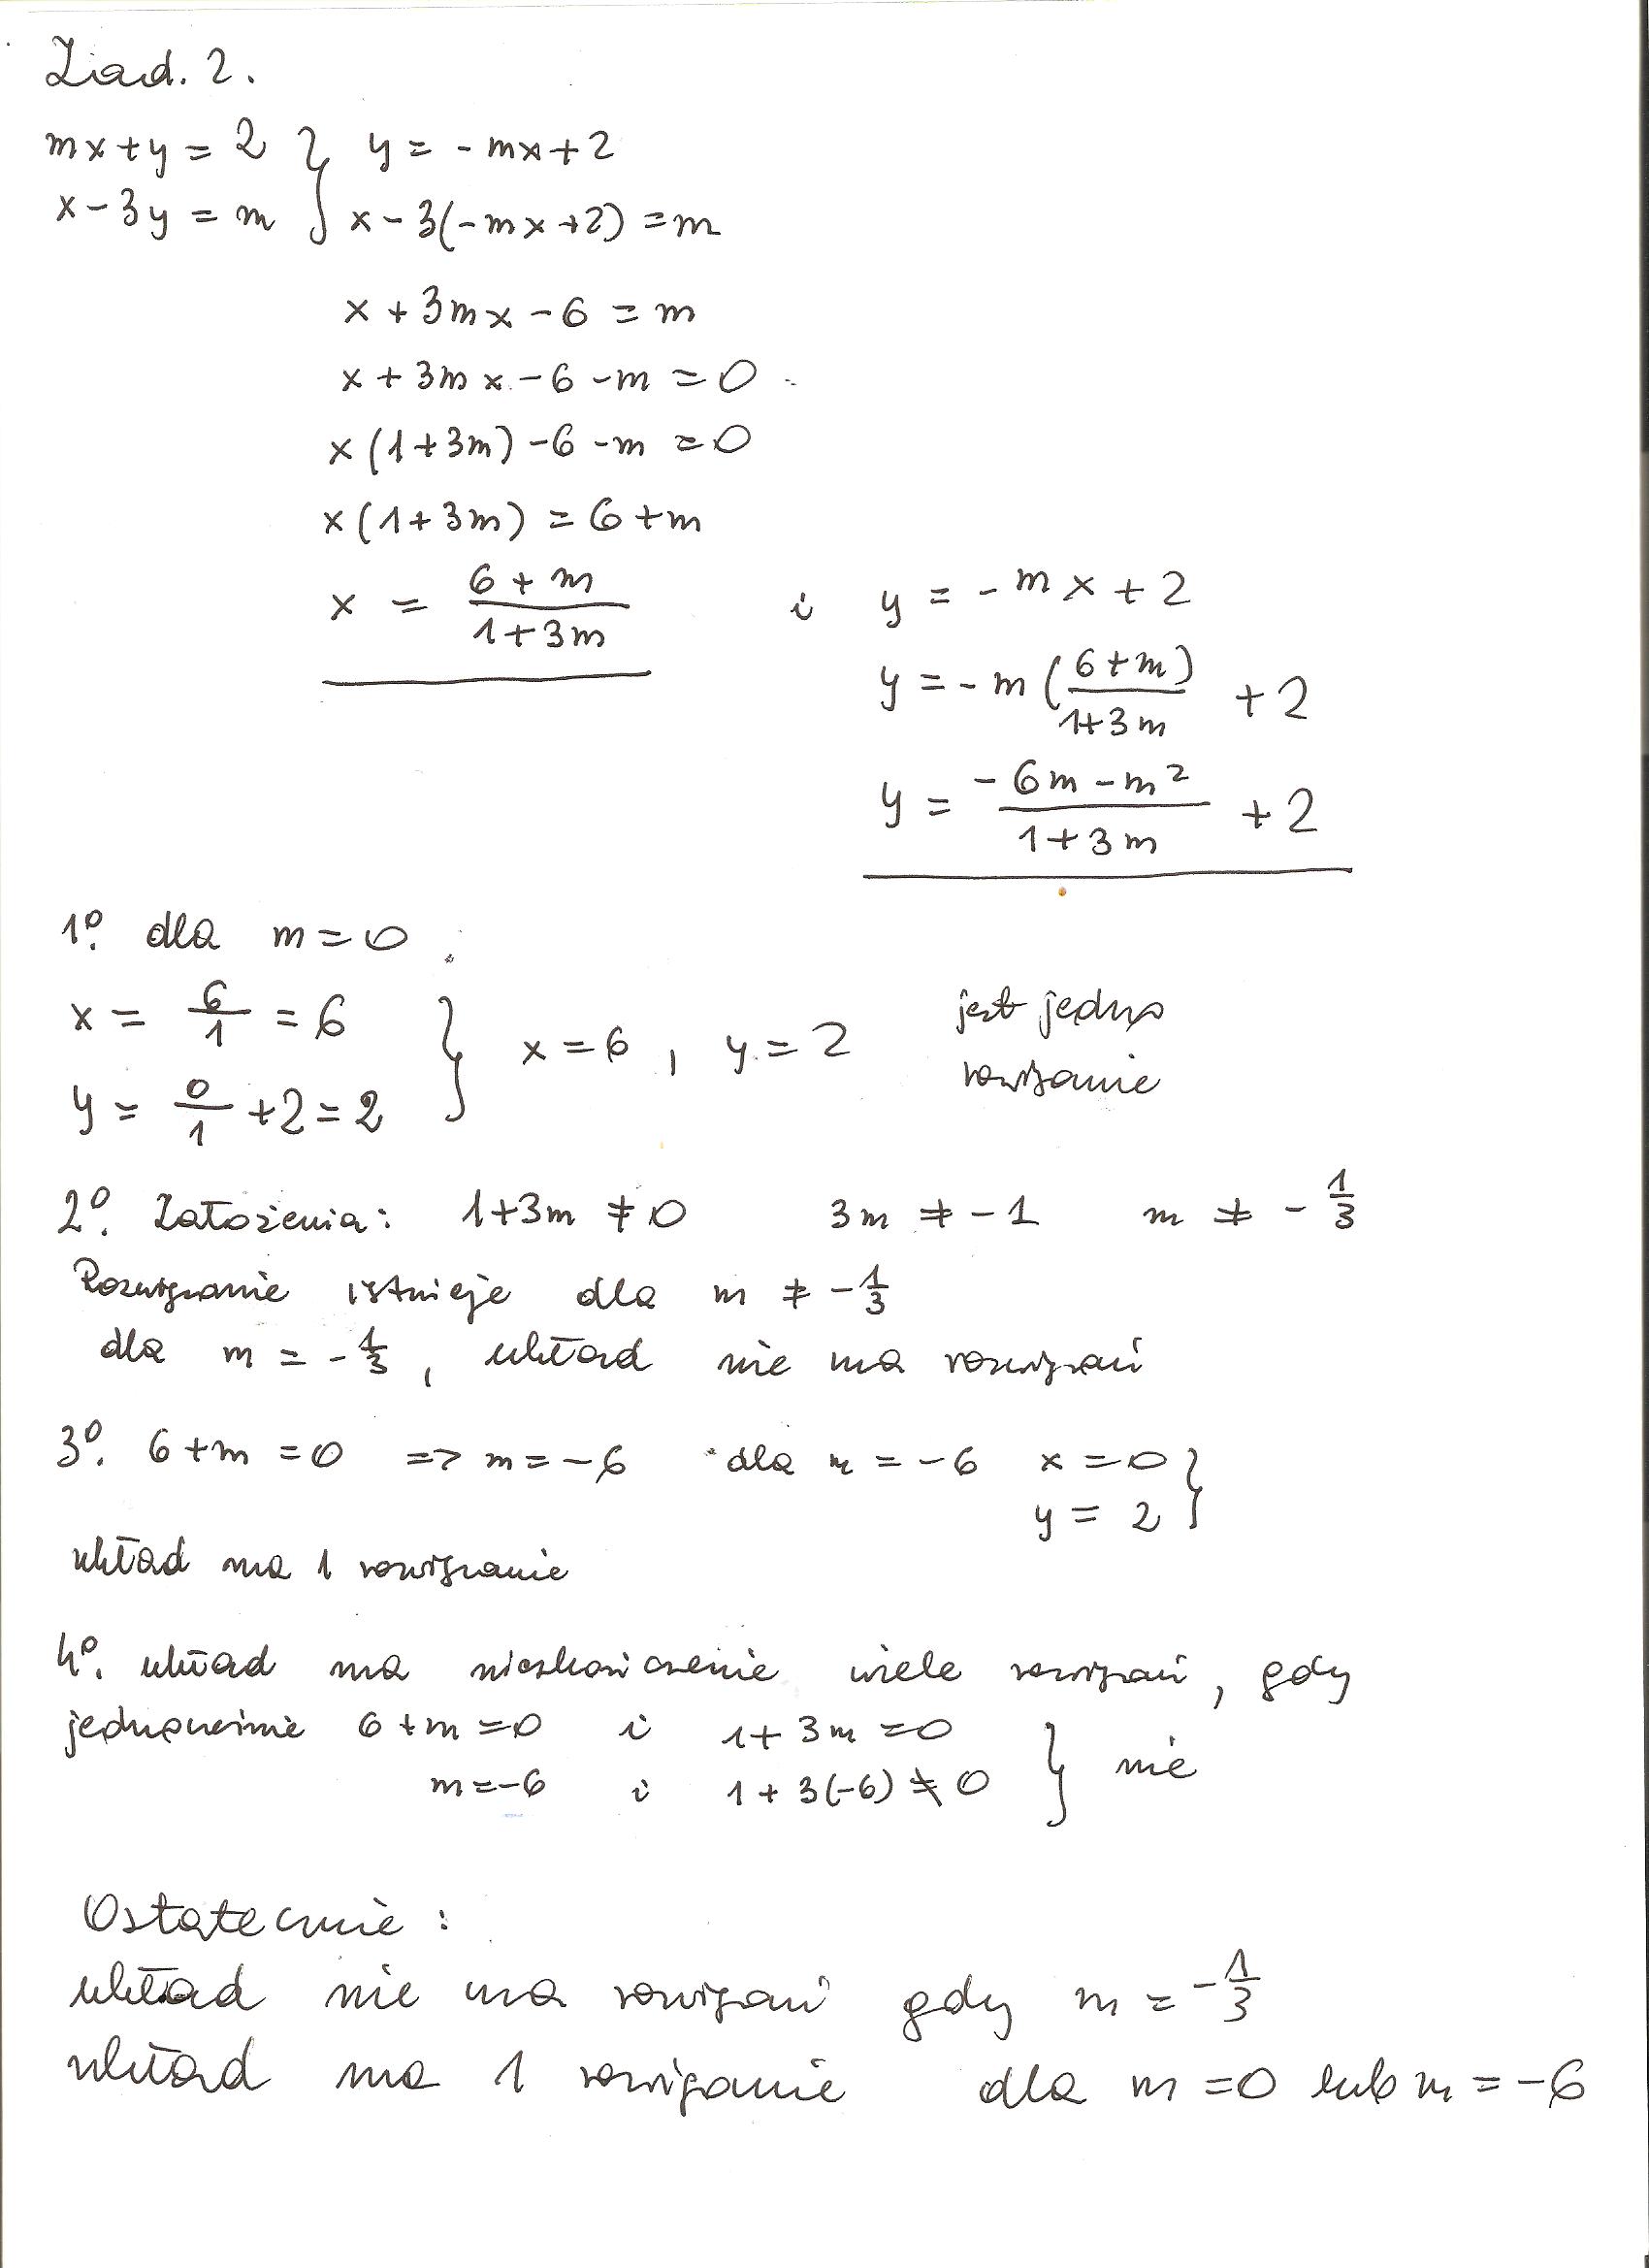 Zad. 2.
mx+y = 2 } y = -mx+2
x-3y = m } x-3(-mx+2) = m
x + 3mx - 6 = m
x + 3mx - 6 - m = 0
x(1+3m) - 6 - m = 0
x(1+3m) = 6+m
x = (6+m)/(1+3m) i y = -mx+2
y = -m((6+m)/(1+3m)) + 2
y = (-6m-m²)/(1+3m) + 2
1º. dla m=0
x = 6/1 = 6 } x=6, y=2 jest jedno
y = 0/1 + 2 = 2 } rozwiązanie
2º. Założenia: 1+3m ≠ 0 3m ≠ -1 m ≠ -1/3
Rozwiązanie istnieje dla m ≠ -1/3
dla m = -1/3, układ nie ma rozwiązań
3º. 6+m = 0 => m = -6 dla m = -6 x = 0 }
y = 2 }
układ ma 1 rozwiązanie
4º. układ ma nieskończenie wiele rozwiązań, gdy
jednocześnie 6+m = 0 i 1+3m = 0 } nie
m = -6 i 1+3(-6) ≠ 0 }
Ostatecznie:
układ nie ma rozwiązań gdy m = -1/3
układ ma 1 rozwiązanie dla m = 0 lub m = -6